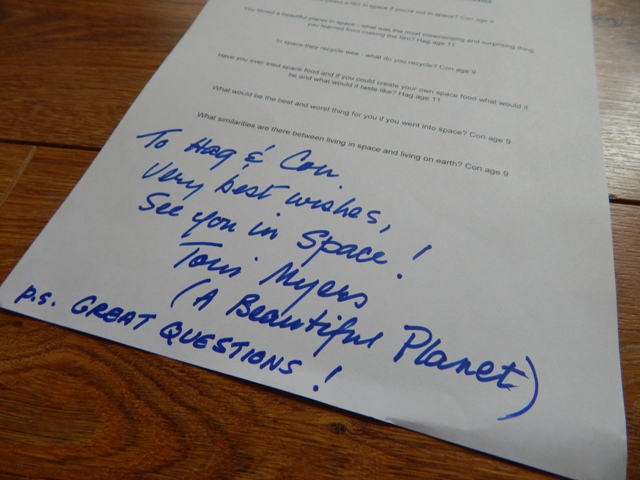 a film in space if you're not in space? Con age 9
You filmed a beautiful planet in space - what was the most mesmerising and surprising thing
you learned from making the film? Hag age 11
In space they recycle wee - what do you recycle? Con age 9
Have you ever tried space food and if you could create your own space food what would it
be and what would it taste like? Hag age 11
What would be the best and worst thing for you if you went into space? Con age 9
What similarities are there between living in space and living on earth? Con age 9
To Hag & Con
Very best wishes,
See you in Space!
Toni Myers
(A Beautiful Planet)
p.s. GREAT QUESTIONS!